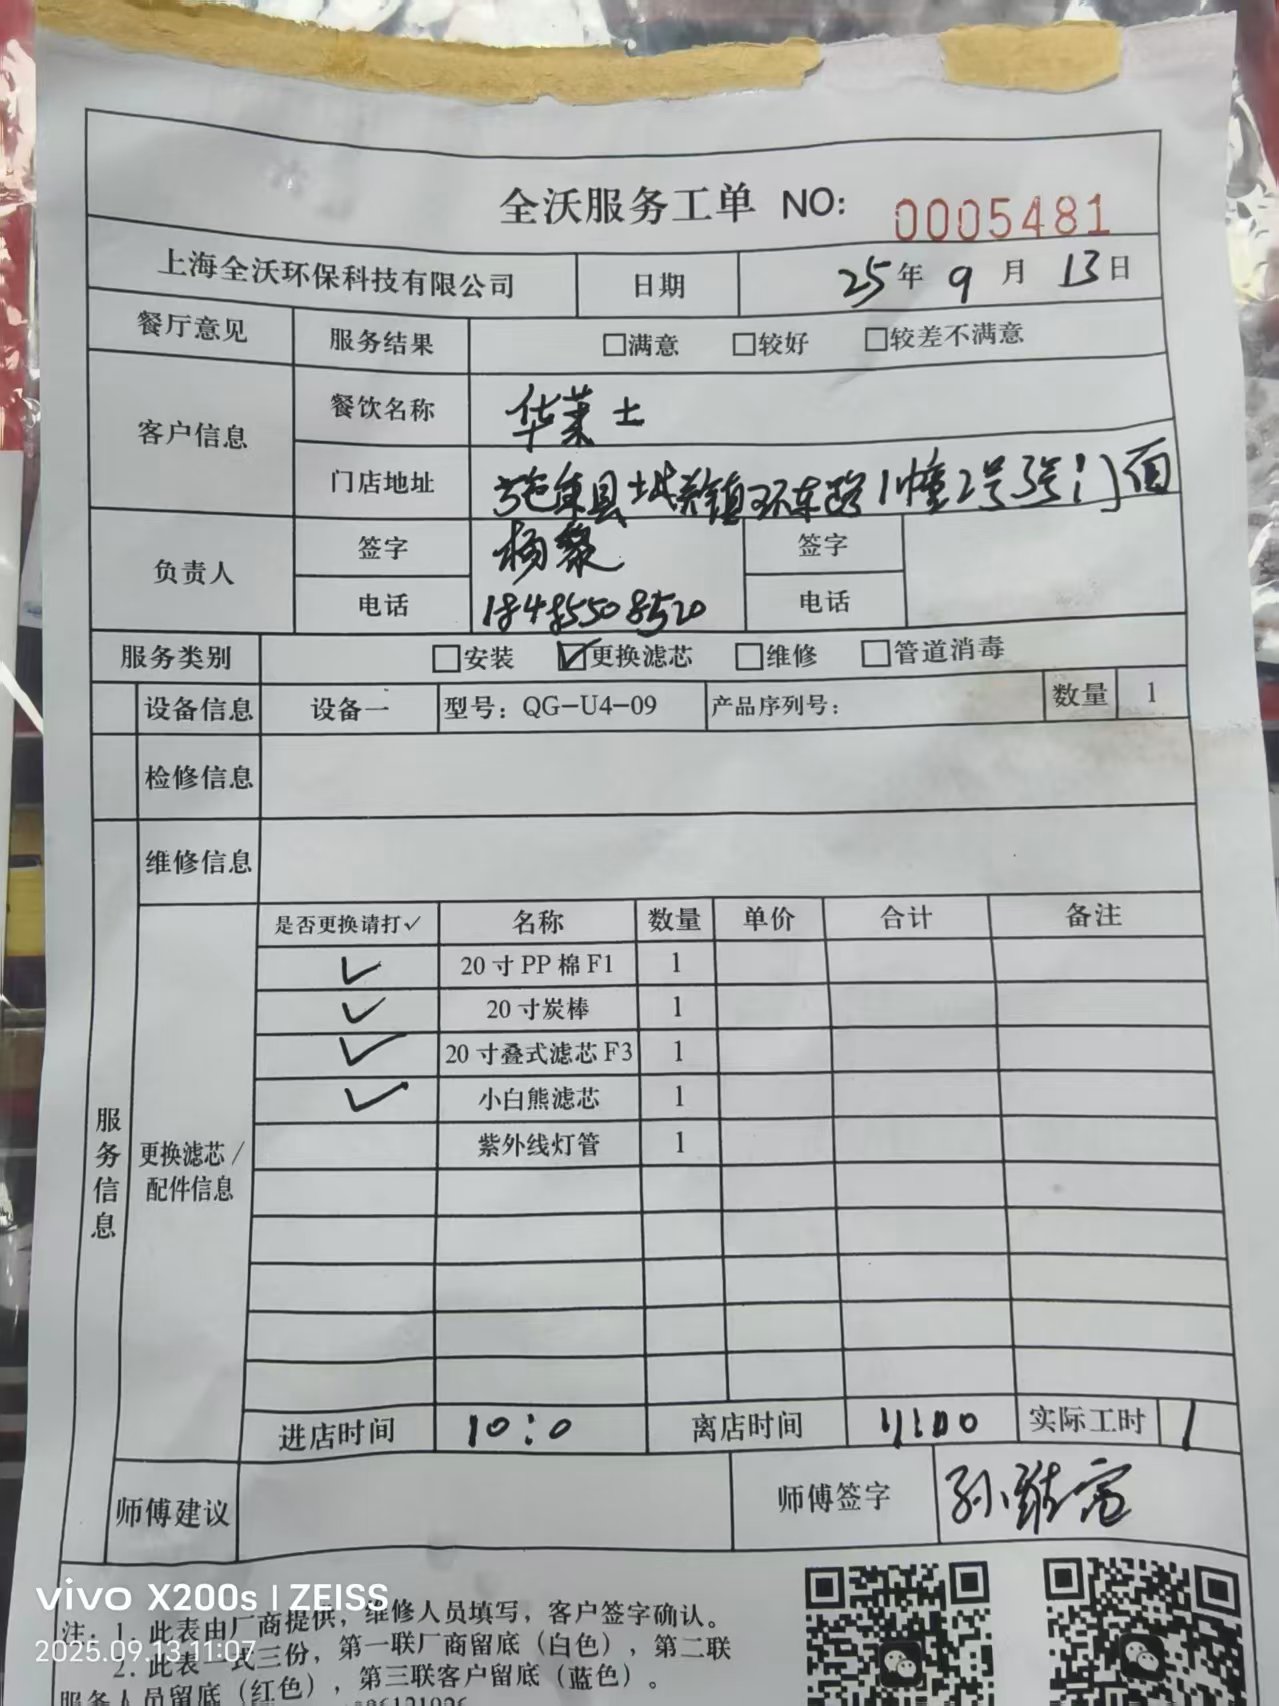 全沃服务工单 NO: 0005481
上海全沃环保科技有限公司 日期 25年 9月 13日
餐厅意见 服务结果 □满意 □较好 □较差不满意
客户信息 餐饮名称 华莱士
门店地址 施秉县城关镇环东路1幢2号3号门面
负责人 签字 杨黎 签字
电话 18485508520 电话
服务类别 □安装 ☑更换滤芯 □维修 □管道消毒
设备信息 设备一 型号：QG-U4-09 产品序列号： 数量 1
检修信息
维修信息
服务信息
更换滤芯/配件信息
是否更换请打✓ 名称 数量 单价 合计 备注
✓ 20寸PP棉F1 1
✓ 20寸炭棒 1
✓ 20寸叠式滤芯F3 1
✓ 小白熊滤芯 1
紫外线灯管 1
进店时间 10:0 离店时间 11:00 实际工时 1
师傅建议 师傅签字 孙
vivo X200s | ZEISS
注：1. 此表由厂商提供，维修人员填写，客户签字确认。
2025.09.13 11:07
2. 此表一式三份，第一联厂商留底（白色），第二联
服务人员留底（红色），第三联客户留底（蓝色）。